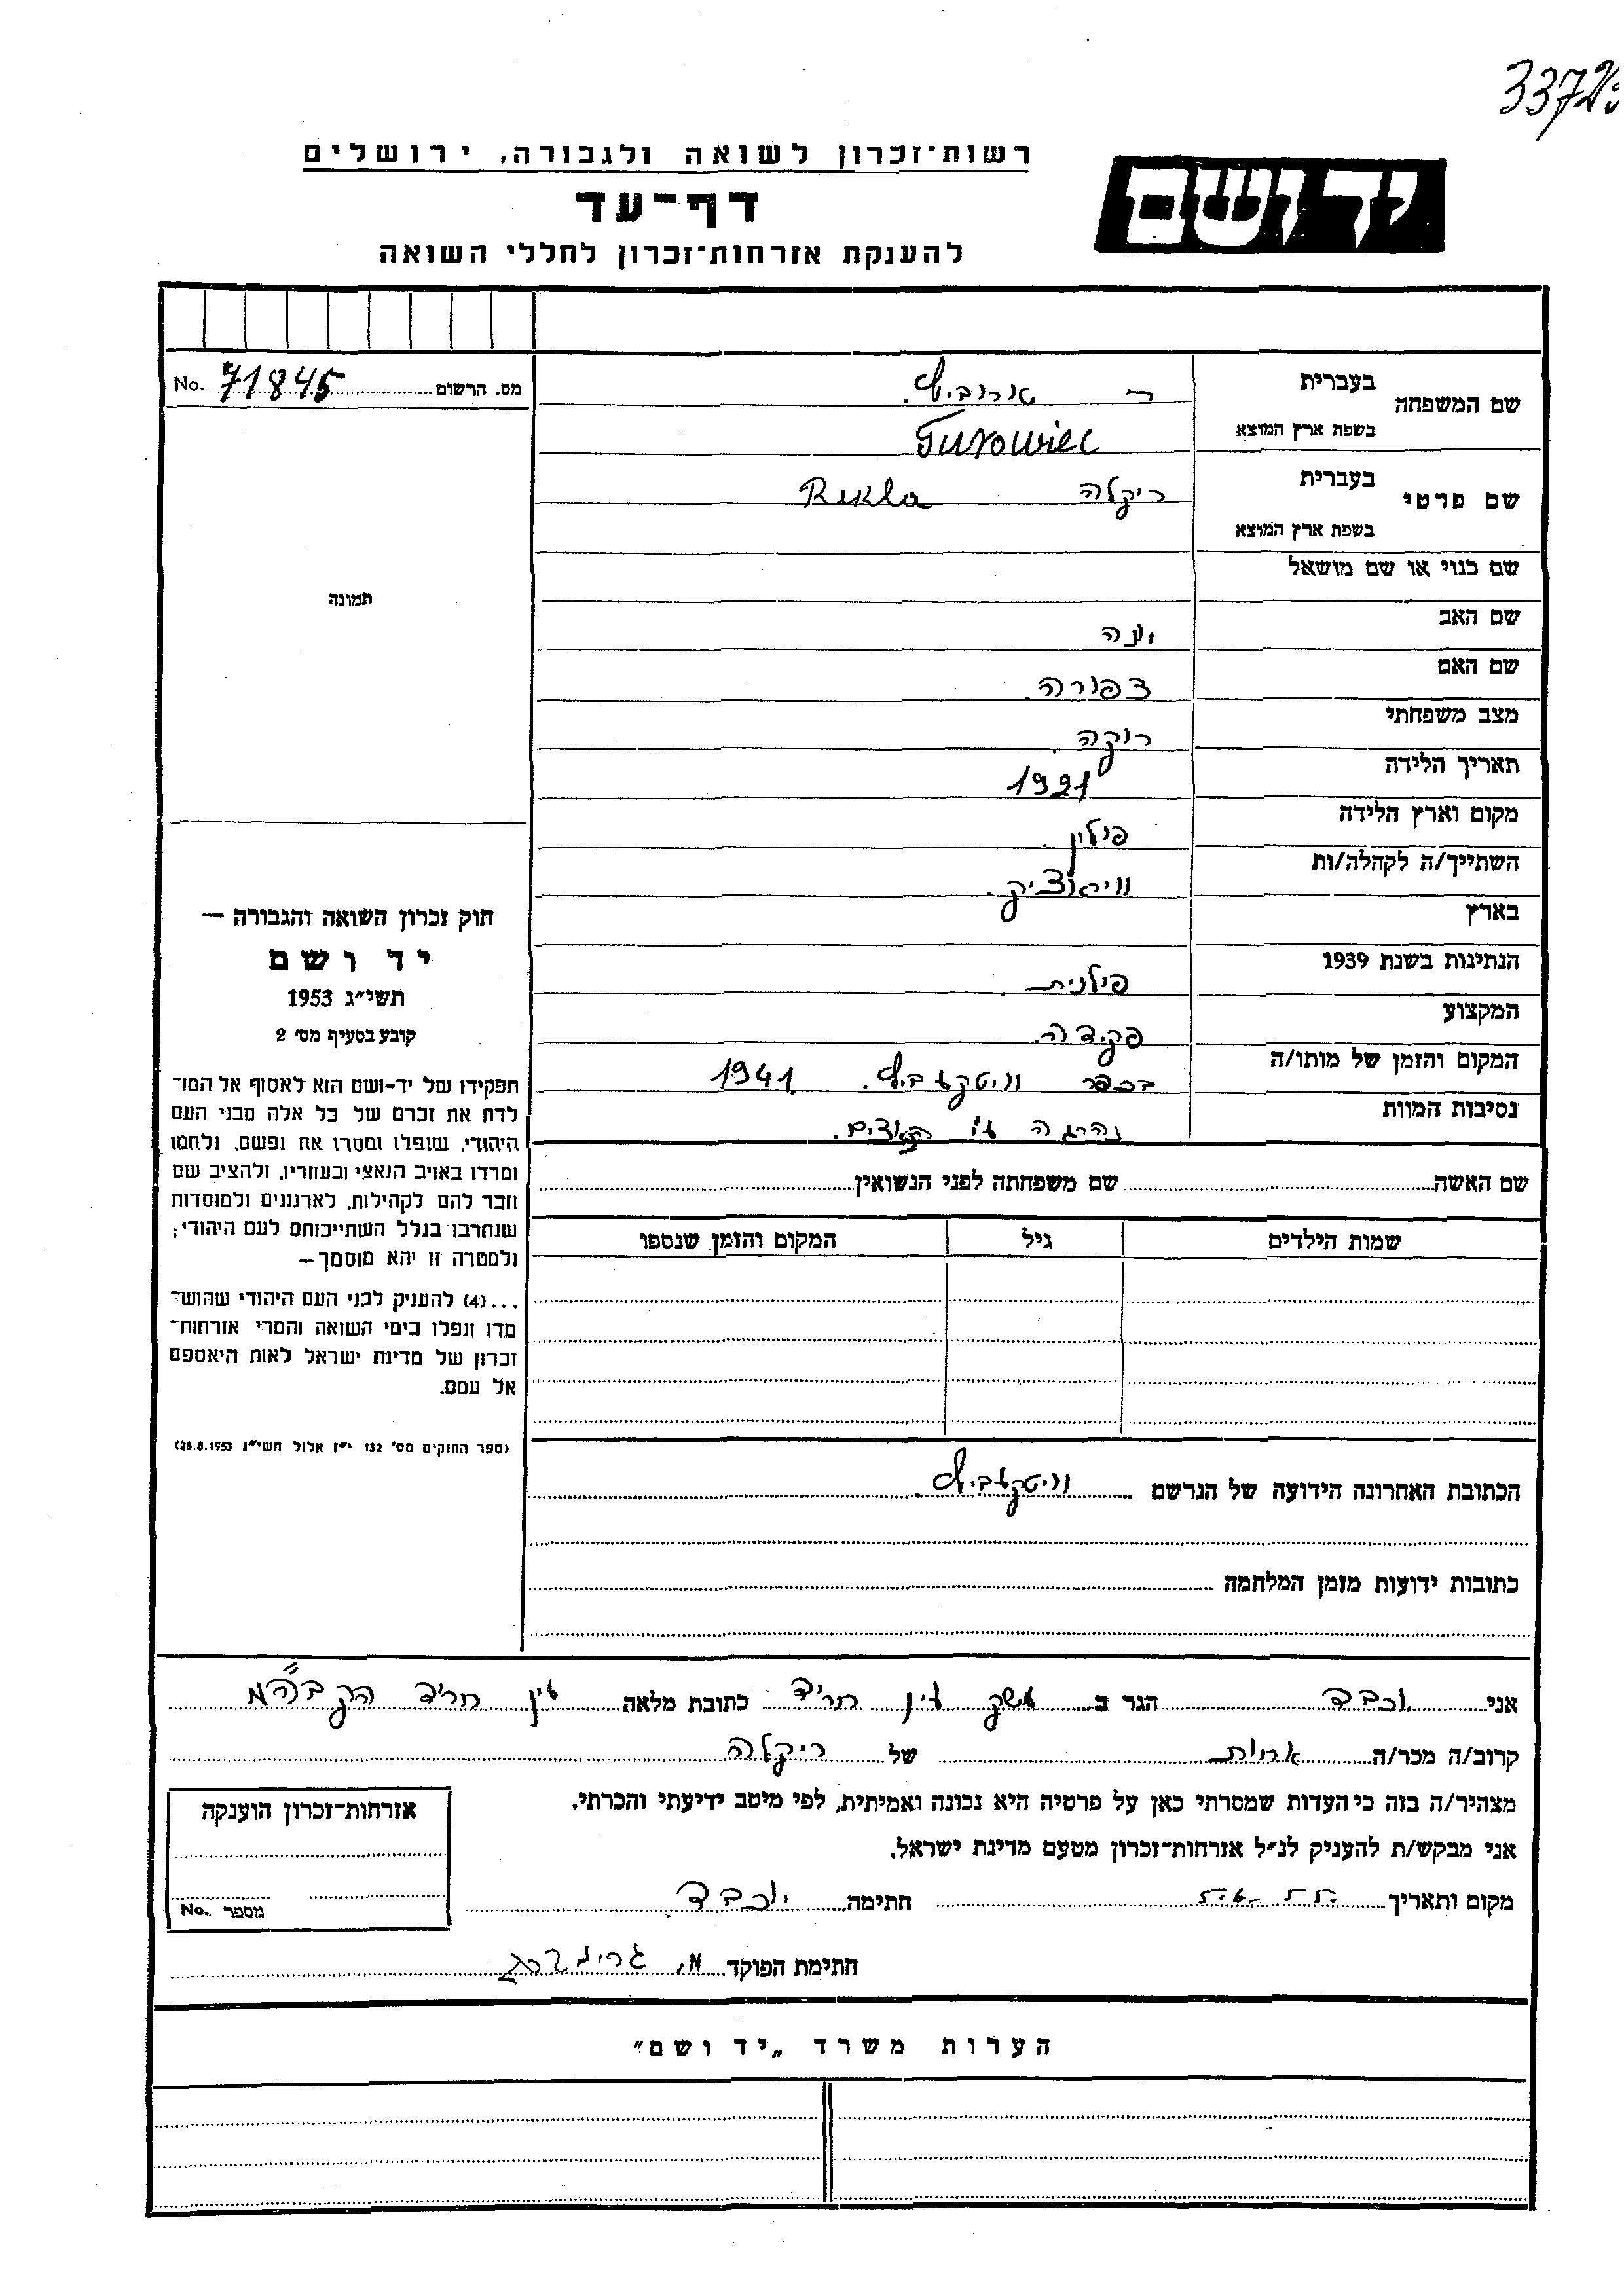 3372
רשות־זכרון לשואה ולגבורה, ירושלים
יד ושם
דף־עד
להענקת אזרחות־זכרון לחללי השואה
מס. הרשום No. 71845
שם המשפחה
בעברית
בשפת ארץ המוצא Turowiec
שם פרטי
בעברית ריקלה Rikla
בשפת ארץ המוצא
שם כנוי או שם מושאל
שם האב יונה
שם האם צפורה
מצב משפחתי רוקה
תאריך הלידה 1921
מקום וארץ הלידה פולין
השתייך/ה לקהלה/ות
בארץ
הנתינות בשנת 1939 פולנית
המקצוע פקידה
המקום והזמן של מותו/ה בכפר 1941
נסיבות המוות נהרגה ע״י הנאצים.
תמונה
חוק זכרון השואה והגבורה —
יד ושם
תשי״ג 1953
קובע בסעיף מס׳ 2
תפקידו של יד-ושם הוא לאסוף אל המו־
לדת את זכרם של כל אלה מבני העם
היהודי, שנפלו ומסרו את נפשם, נלחמו
ומרדו באויב הנאצי ובעוזריו, ולהציב שם
וזכר להם לקהילות, לארגונים ולמוסדות
שנחרבו בגלל השתייכותם לעם היהודי;
ולמטרה זו יהא מוסמך—
...(4) להעניק לבני העם היהודי שהוש־
מדו ונפלו בימי השואה והמרי אזרחות־
זכרון של מדינת ישראל לאות היאספם
אל עמם.
(ספר החוקים מס׳ 132 י״ז אלול תשי״ג 28.8.1953)
שם האשה שם משפחתה לפני הנשואין
שמות הילדים גיל המקום והזמן שנספו
הכתובת האחרונה הידועה של הנרשם
כתובות ידועות מזמן המלחמה
אני יוכבד הגר ב עין חרוד כתובת מלאה עין חרוד
קרוב/ה מכר/ה אחות של ריקלה
מצהיר/ה בזה כי העדות שמסרתי כאן על פרטיה היא נכונה ואמיתית, לפי מיטב ידיעתי והכרתי.
אני מבקש/ת להעניק לנ״ל אזרחות־זכרון מטעם מדינת ישראל.
מקום ותאריך חתימה יוכבד
חתימת הפוקד
אזרחות־זכרון הוענקה
מספר No.
הערות משרד „יד ושם״